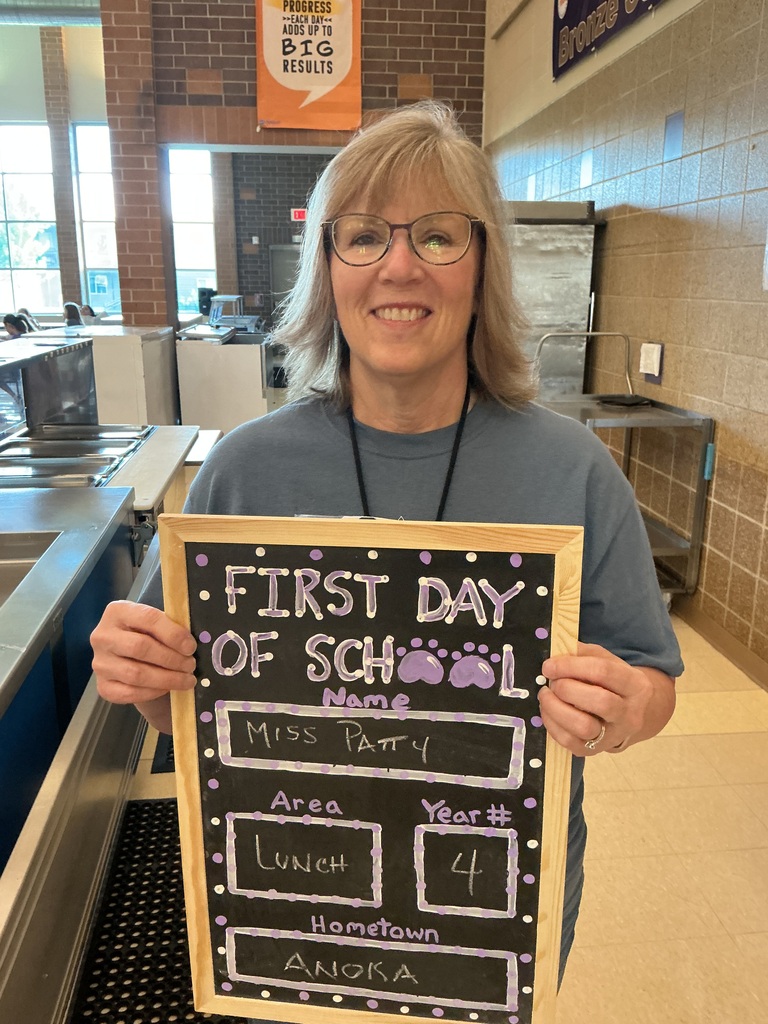 PROGRESS
EACH DAY
ADDS UP TO
BIG
RESULTS
Bronze
FIRST DAY
OF SCHOOL
Name
MISS PATTY
Area
Year #
LUNCH
4
Hometown
ANOKA